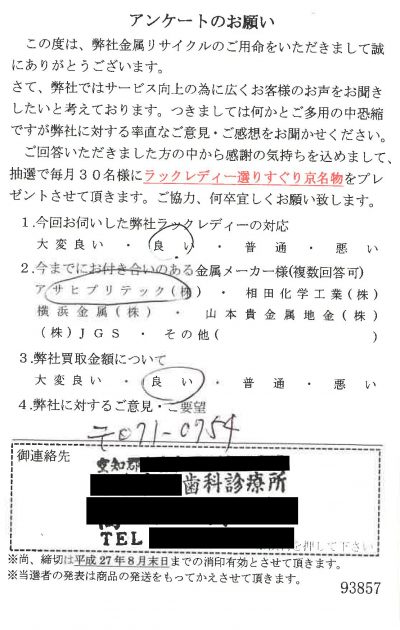 アンケートのお願い
この度は、弊社金属リサイクルのご用命をいただきまして誠
にありがとうございます。
さて、弊社ではサービス向上の為に広くお客様のお声をお聞き
したいと考えております。つきましては何かとご多用の中恐縮
ですが弊社に対する率直なご意見・ご感想をお聞かせください。
ご回答いただきました方の中から感謝の気持ちを込めまして、
抽選で毎月30名様にラックレディー選りすぐり京名物をプレ
ゼントさせて頂きます。ご協力、何卒宜しくお願い致します。
1.今回お伺いした弊社ラックレディーの対応
大変良い・良い・普通・悪い
2.今までにお付き合いのある金属メーカー様(複数回答可)
アサヒプリテック(株)・相田化学工業(株)
横浜金属(株)・山本貴金属地金(株)
(株)JGS・その他( )
3.弊社買取金額について
大変良い・良い・普通・悪い
4.弊社に対するご意見・ご要望
〒071-0754
御連絡先
愛知郡
歯科診療所
TEL
を押して下さい
※尚、締切は平成27年8月末日までの消印有効とさせて頂きます。
※当選者の発表は商品の発送をもってかえさせて頂きます。
93857